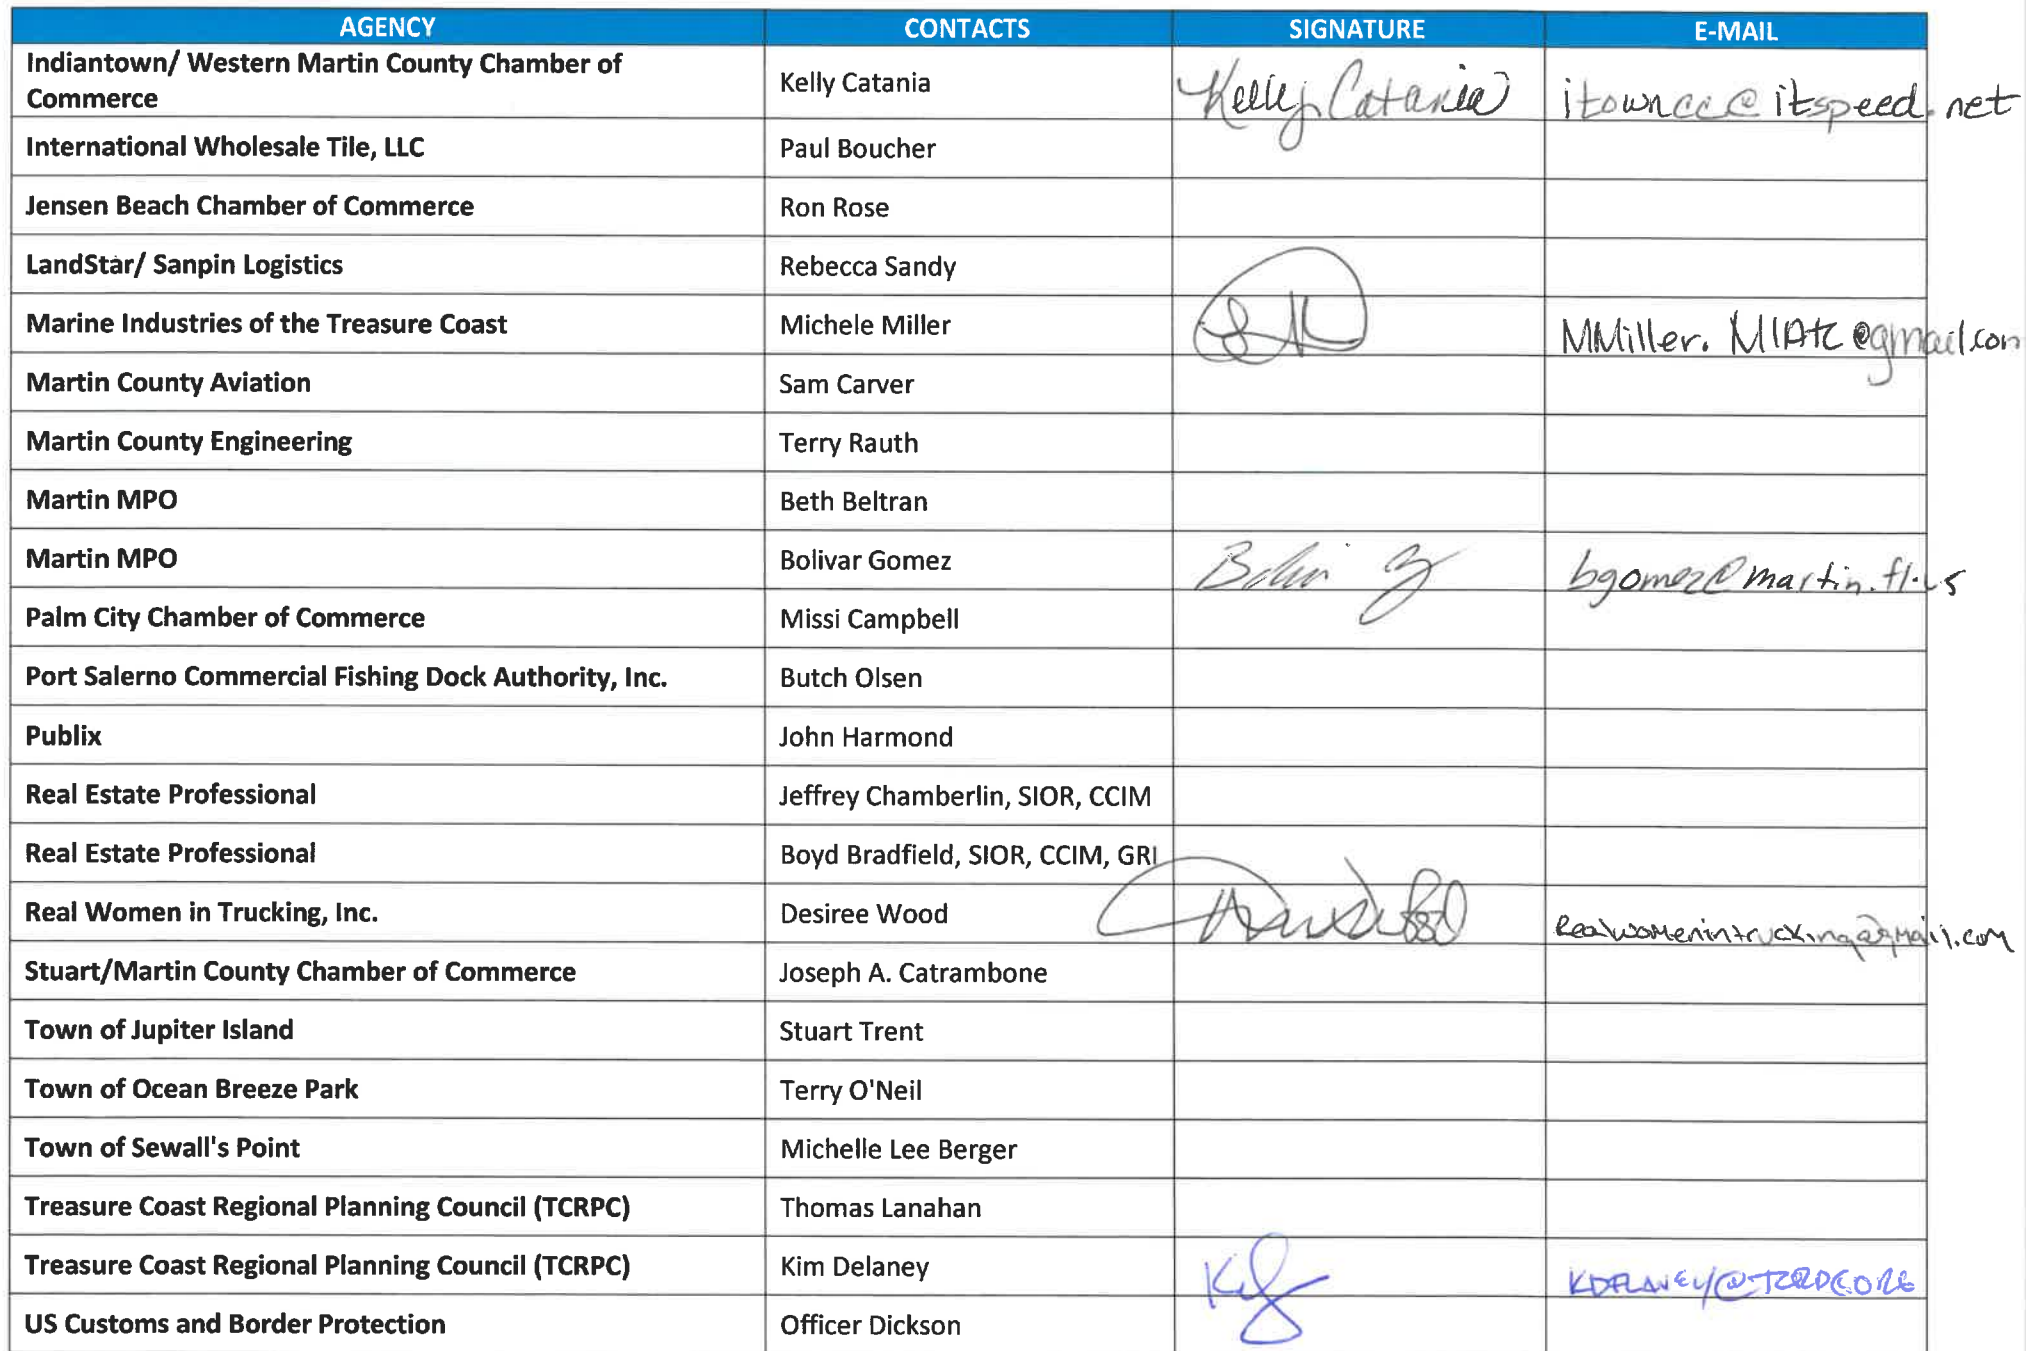 AGENCY CONTACTS SIGNATURE E-MAIL
Indiantown/ Western Martin County Chamber of
Commerce Kelly Catania Kelly Catania itowncc@itspeed.net
International Wholesale Tile, LLC Paul Boucher
Jensen Beach Chamber of Commerce Ron Rose
LandStar/ Sanpin Logistics Rebecca Sandy
Marine Industries of the Treasure Coast Michele Miller MMiller.MIATC@gmail.com
Martin County Aviation Sam Carver
Martin County Engineering Terry Rauth
Martin MPO Beth Beltran
Martin MPO Bolivar Gomez bgomez@martin.fl.us
Palm City Chamber of Commerce Missi Campbell
Port Salerno Commercial Fishing Dock Authority, Inc. Butch Olsen
Publix John Harmond
Real Estate Professional Jeffrey Chamberlin, SIOR, CCIM
Real Estate Professional Boyd Bradfield, SIOR, CCIM, GRI
Real Women in Trucking, Inc. Desiree Wood Realwomenintrucking@gmail.com
Stuart/Martin County Chamber of Commerce Joseph A. Catrambone
Town of Jupiter Island Stuart Trent
Town of Ocean Breeze Park Terry O'Neil
Town of Sewall's Point Michelle Lee Berger
Treasure Coast Regional Planning Council (TCRPC) Thomas Lanahan
Treasure Coast Regional Planning Council (TCRPC) Kim Delaney KDELANEY@TCRPC.ORG
US Customs and Border Protection Officer Dickson